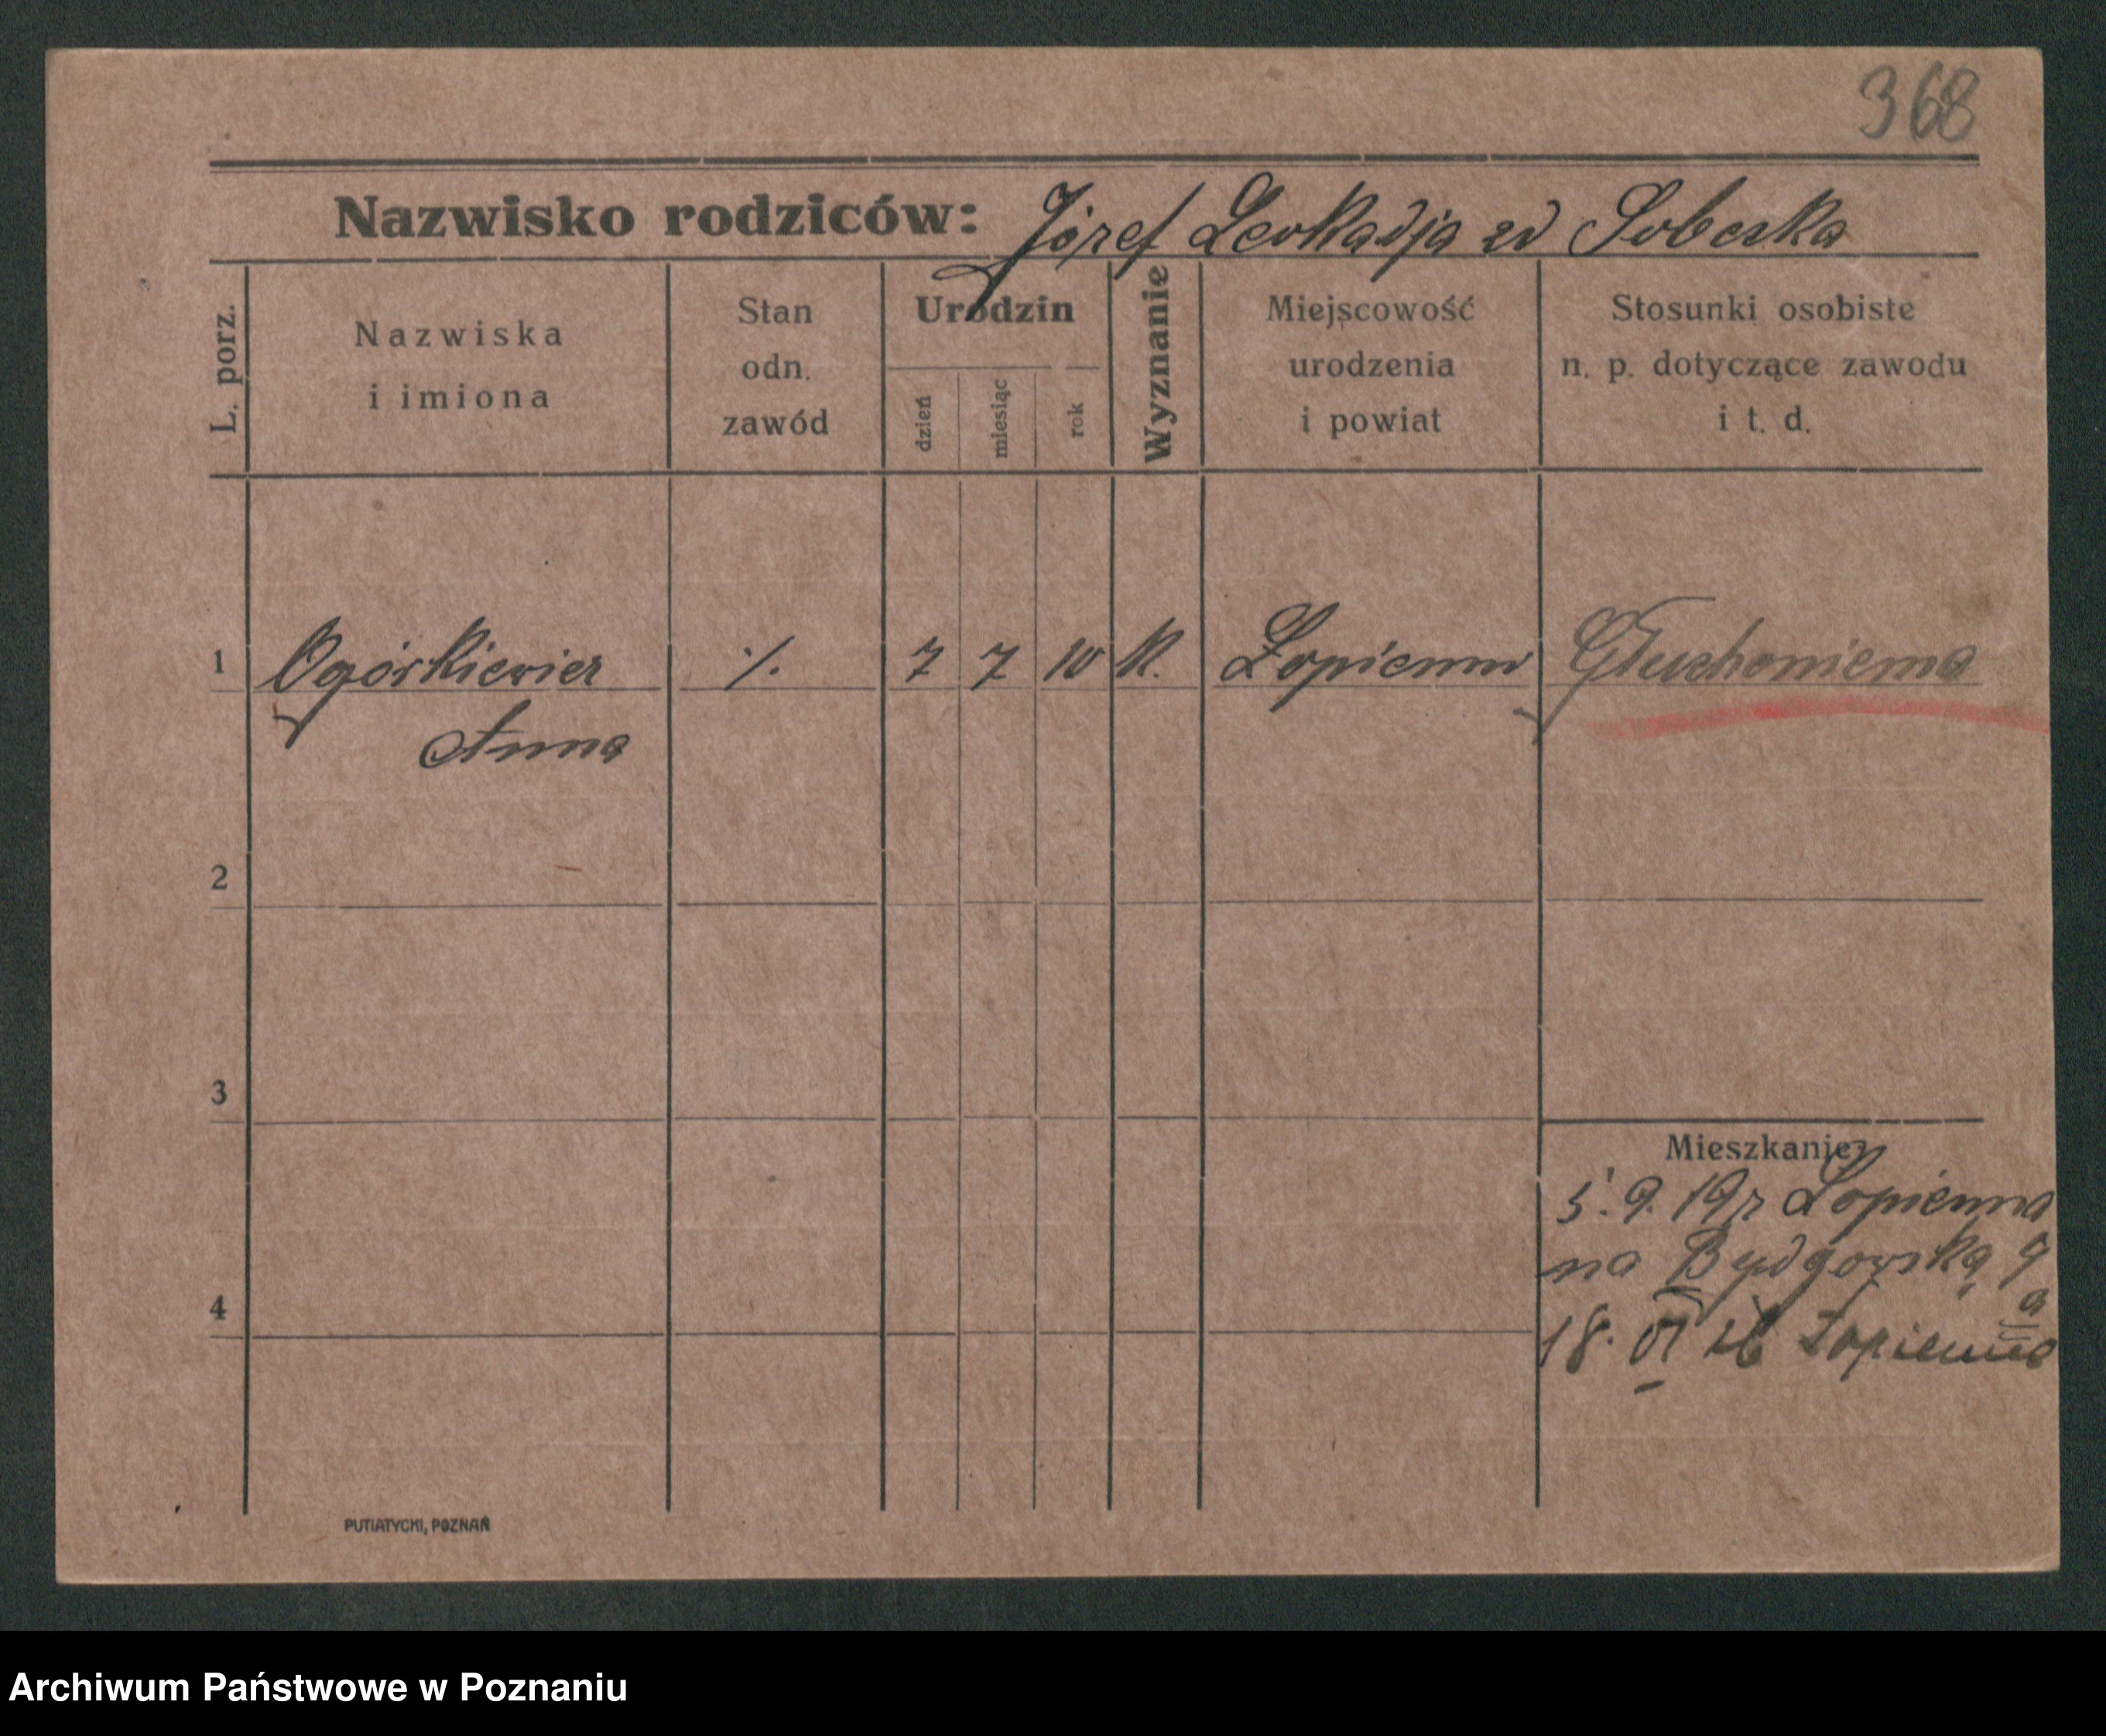 368
Nazwisko rodziców: Józef Leokadja zd Sobeska
L. porz.
Nazwiska
i imiona
Stan
odn.
zawód
Urodzin
dzień
miesiąc
rok
Wyznanie
Miejscowość
urodzenia
i powiat
Stosunki osobiste
n. p. dotyczące zawodu
i t. d.
1 Ogórkiewicz ·/. 7 7 10 K. Łopienno Głuchoniema
Anna
2
3
Mieszkanie
5. 9. 19 r Łopienna
na Bydgoską 9
a
4
18. VI Łopienno
PUTIATYCKI, POZNAŃ
Archiwum Państwowe w Poznaniu